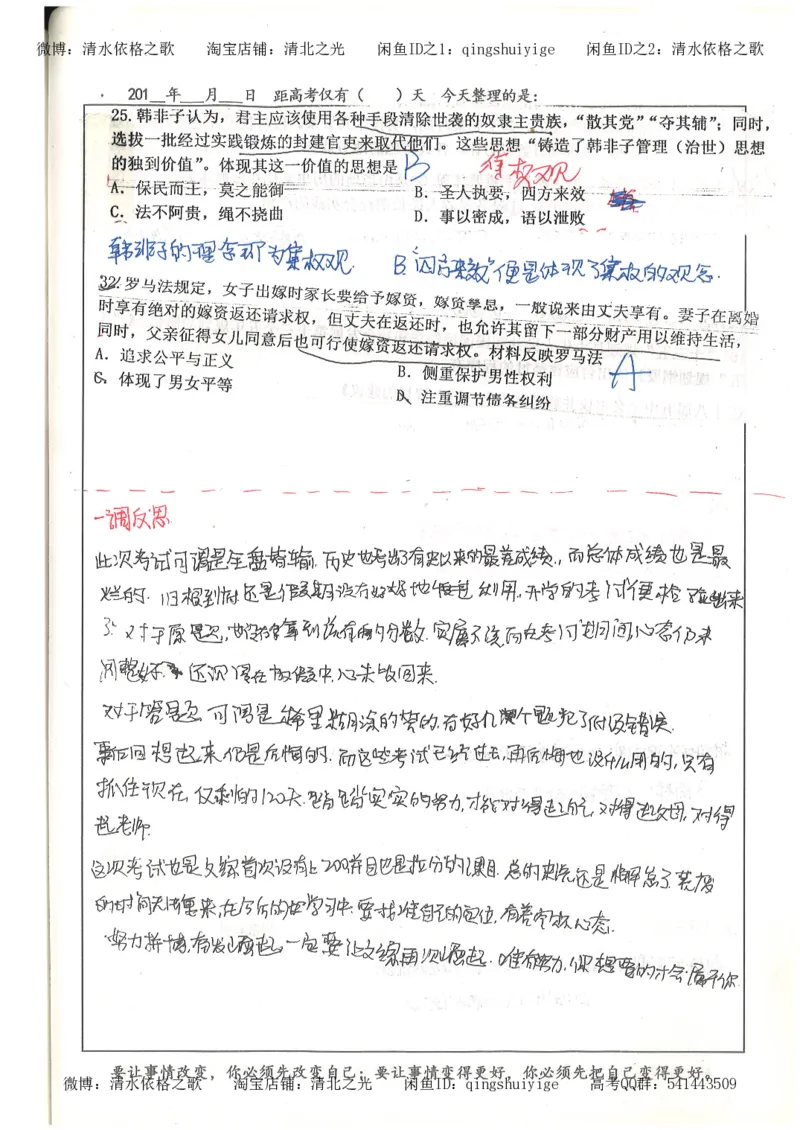 微博：清水依格之歌 淘宝店铺：清北之光 闲鱼ID之1：qingshuiyige 闲鱼ID之2：清水依格之歌
201__年___月___日 距高考仅有（ ）天 今天整理的是：
25.韩非子认为，君主应该使用各种手段清除世袭的奴隶主贵族，“散其党”“夺其辅”；同时，
选拔一批经过实践锻炼的封建官吏来取代他们。这些思想“铸造了韩非子管理（治世）思想
的独到价值”。体现其这一价值的思想是 B 集权观
A．保民而王，莫之能御 B．圣人执要，四方来效
C．法不阿贵，绳不挠曲 D．事以密成，语以泄败
韩非子的理念即为集权观. B“四方来效”便是体现了集权的观念.
32.罗马法规定，女子出嫁时家长要给予嫁资，嫁资孳息，一般说来由丈夫享有。妻子在离婚
时享有绝对的嫁资返还请求权，但丈夫在返还时，也允许其留下一部分财产用以维持生活，
同时，父亲征得女儿同意后也可行使嫁资返还请求权。材料反映罗马法 A
A．追求公平与正义 B．侧重保护男性权利
C．体现了男女平等 D．注重调节债务纠纷
一调反思
此次考试可谓是全盘皆输.历史也考出了有史以来的最差成绩，而总体成绩也是最
烂的.归根到底还是假期没有好好地利用,开学的考试便检了出来
了.对于原题,也没有拿到该有的分数.实属不该.而在考试期间,心态仍未
调整好.还沉浸在放假中,心未收回来.
对于答题,可谓是稀里糊涂的答的,有好几个题犯了低级错误.
事后回想起来便是后悔的.而这些考试已经过去,再后悔也没什么用的,只有
抓住现在,仅剩的120天.踏踏实实的努力,才能对得起自己,对得起父母,对得
起老师.
这次考试也是文综首次没有上200并且也是拉分的课目.总的来说还是懈怠了.荒废
的时间无法重来,在今后的学习中.要找准自己的定位,有着空杯心态.
努力拼搏,有发愤崛起,一定要让文综再次崛起.唯有努力,你想要的才会属于你
要让事情改变，你必须先改变自己；要让事情变得更好，你必须先把自己变得更好。
微博：清水依格之歌 淘宝店铺：清北之光 闲鱼ID：qingshuiyige 高考QQ群：541443509